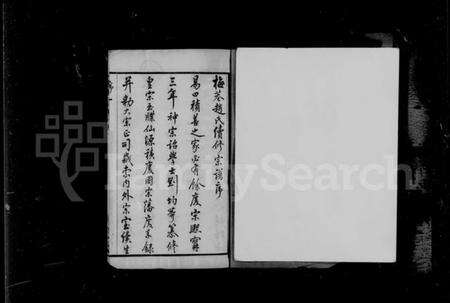 梅菴趙氏續修宗譜序
易曰積善之家必有餘慶宋熙寧
三年神宗詔學士劉均等纂修
皇宗玉牒仙源積慶圖宗藩慶系錄
并勅大宗正司藏定內外宗室後生
FamilySearch